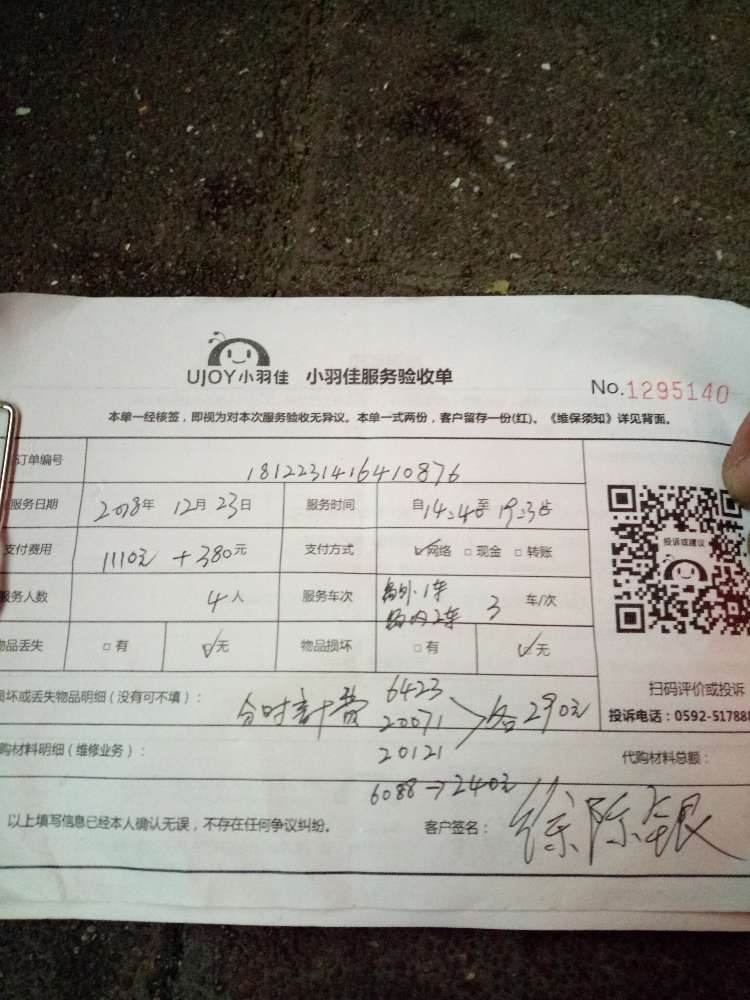 UJOY小羽佳 小羽佳服务验收单
No.1295140
本单一经核签，即视为对本次服务验收无异议。本单一式两份，客户留存一份(红)。《维保须知》详见背面。
订单编号 1812231416410876
服务日期 2018年 12月 23日 服务时间 自14:40至19:30止
支付费用 1110元+380元 支付方式 ☑网络 □现金 □转账
服务人数 4人 服务车次 岛外.1车 岛内2车 3 车/次
物品丢失 □有 ☑无 物品损坏 □有 ☑无
投诉或建议
扫码评价或投诉
投诉电话：0592-517888
损坏或丢失物品明细（没有可不填）： 分时计费 6423
20071 各290元
购材料明细（维修业务）： 20121 代购材料总额：
6088→240元
以上填写信息已经本人确认无误，不存在任何争议纠纷。 客户签名：